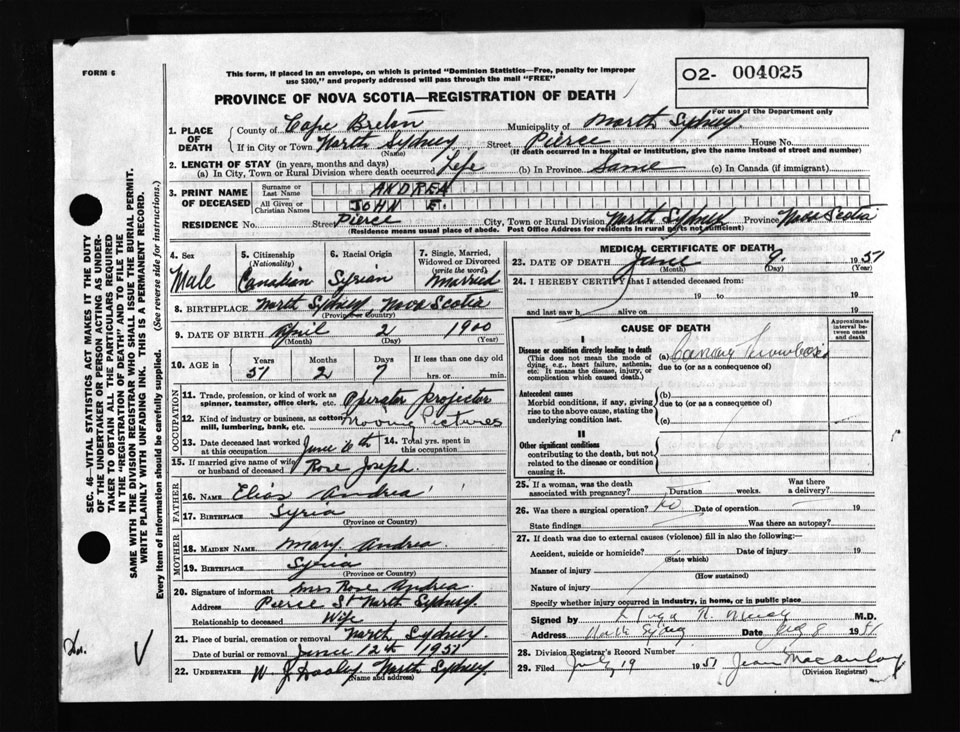 FORM 6
This form, if placed in an envelope, on which is printed "Dominion Statistics—Free, penalty for improper
use $300," and properly addressed will pass through the mail "FREE"
O2- 004025
For use of the Department only
PROVINCE OF NOVA SCOTIA—REGISTRATION OF DEATH
1. PLACE OF DEATH
County of Cape Breton Municipality of North Sydney
If in City or Town North Sydney Street Pierce House No.
(Name) (If death occurred in a hospital or institution, give the name instead of street and number)
2. LENGTH OF STAY (in years, months and days)
(a) In City, Town or Rural Division where death occurred Life (b) in Province Same (c) In Canada (if immigrant)
3. PRINT NAME OF DECEASED
Surname or Last Name ANDREA
All Given or Christian Names JOHN E.
RESIDENCE No. Street Pierce City, Town or Rural Division North Sydney Province Nova Scotia
(Residence means usual place of abode. Post Office Address for residents in rural parts not sufficient)
4. Sex Male
5. Citizenship (Nationality) Canadian
6. Racial Origin Syrian
7. Single, Married, Widowed or Divorced (write the word) Married
8. BIRTHPLACE North Sydney Nova Scotia
(Province or Country)
9. DATE OF BIRTH April 2 1900
(Month) (Day) (Year)
10. AGE if Years 51 Months 2 Days 7 If less than one day old
hrs. or min.
OCCUPATION
11. Trade, profession, or kind of work as spinner, teamster, office clerk, etc. Operator projector
12. Kind of industry or business, as cotton mill, lumbering, bank, etc. Moving Pictures
13. Date deceased last worked at this occupation June 6th
14. Total yrs. spent in this occupation
15. If married give name of wife or husband of deceased Rose Joseph
FATHER
16. NAME Elias Andrea
17. BIRTHPLACE Syria
(Province or Country)
MOTHER
18. MAIDEN NAME Mary Andrea
19. BIRTHPLACE Syria
(Province or Country)
20. Signature of informant Mrs Rose Andrea
Address Pierce St North Sydney
Relationship to deceased Wife
21. Place of burial, cremation or removal North Sydney
Date of burial or removal June 12th 1951
22. UNDERTAKER W. J. Dooley North Sydney
(Name and address)
MEDICAL CERTIFICATE OF DEATH
23. DATE OF DEATH June 9 1951
(Month) (Day) (Year)
24. I HEREBY CERTIFY that I attended deceased from
19 to 19
and last saw h alive on 19
CAUSE OF DEATH
Approximate interval between onset and death
I
Disease or condition directly leading to death (a) Coronary Thrombosis
(This does not mean the mode of dying, e.g., heart failure, asthenia, etc. It means the disease, injury, or complication which caused death.)
due to (or as a consequence of)
Antecedent causes (b)
Morbid conditions, if any, giving rise to the above cause, stating the underlying condition last.
due to (or as a consequence of)
(c)
II
Other significant conditions
contributing to the death, but not related to the disease or condition causing it.
25. If a woman, was the death associated with pregnancy? Duration weeks. Was there a delivery?
26. Was there a surgical operation? No Date of operation 19
State findings Was there an autopsy?
27. If death was due to external causes (violence) fill in also the following:—
Accident, suicide or homicide? Date of injury 19
(State which)
Manner of injury
(How sustained)
Nature of injury
Specify whether injury occurred in industry, in home, or in public place
Signed by M.D.
Address North Sydney Date 8 1951
28. Division Registrar's Record Number
29. Filed July 19 1951 Jean MacAulay
(Division Registrar)
SEC. 46—VITAL STATISTICS ACT MAKES IT THE DUTY
OF THE UNDERTAKER OR PERSON ACTING AS UNDER-
TAKER TO OBTAIN ALL THE PARTICULARS REQUIRED
IN THE "REGISTRATION OF DEATH" AND TO FILE THE
SAME WITH THE DIVISION REGISTRAR WHO SHALL ISSUE THE BURIAL PERMIT.
WRITE PLAINLY WITH UNFADING INK. THIS IS A PERMANENT RECORD.
Every item of information should be carefully supplied. (See reverse side for instructions.)